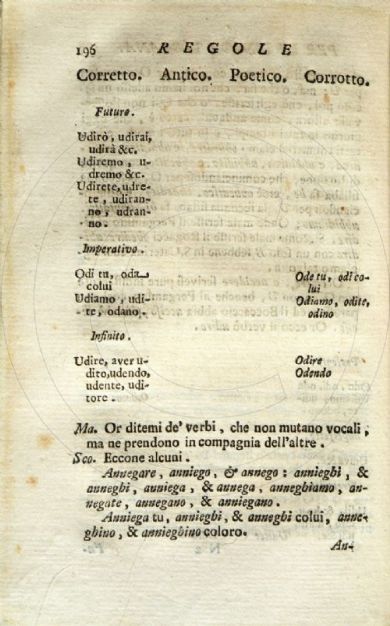 196 REGOLE
Corretto. Antico. Poetico. Corrotto.
Futuro.
Udirò, udirai,
udirà &c.
Udiremo, u-
dremo &c.
Udirete, udre-
te, udiran-
no, udran-
no.
Imperativo.
Odi tu, oda Ode tu, odi co-
colui lui
Udiamo, udi- Odiamo, odite,
te, odano. odino
Infinito.
Udire, aver u- Odire
dito, udendo, Odendo
udente, udi-
tore.
Ma. Or ditemi de' verbi, che non mutano vocali,
ma ne prendono in compagnia dell'altre.
Sco. Eccone alcuni.
Annegare, anniego, & annego: annieghi, &
anneghi, anniega, & annega, anneghiamo, an-
negate, annegano, & anniegano.
Anniega tu, annieghi, & anneghi colui, anne-
ghino, & annieghino coloro.
An-